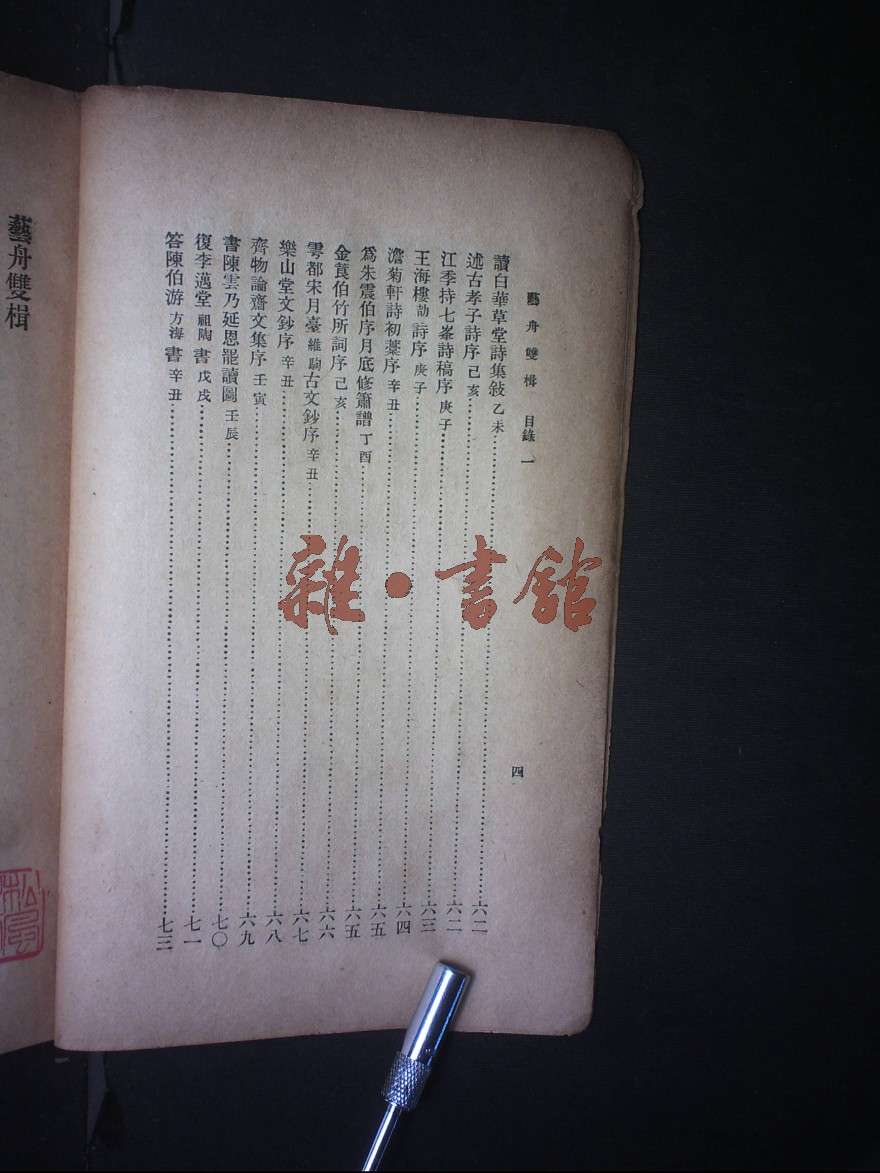 藝舟雙楫 目錄一 四
讀白華草堂詩集敍 乙未 六二
述古孝子詩序 己亥 六二
江季持七峯詩稿序 庚子 六三
王海樓劼詩序 庚子 六四
澹菊軒詩初藳序 辛丑 六五
爲朱震伯序月底修簫譜 丁酉 六五
金萇伯竹所詞序 己亥 六六
雩都宋月臺維駒古文鈔序 辛丑 六七
樂山堂文鈔序 辛丑 六八
齊物論齋文集序 壬寅 六九
書陳雲乃延恩罷讀圖 壬辰 七〇
復李邁堂祖陶書 戊戌 七一
答陳伯游方海書 辛丑 七三
藝舟雙楫
雜·書館